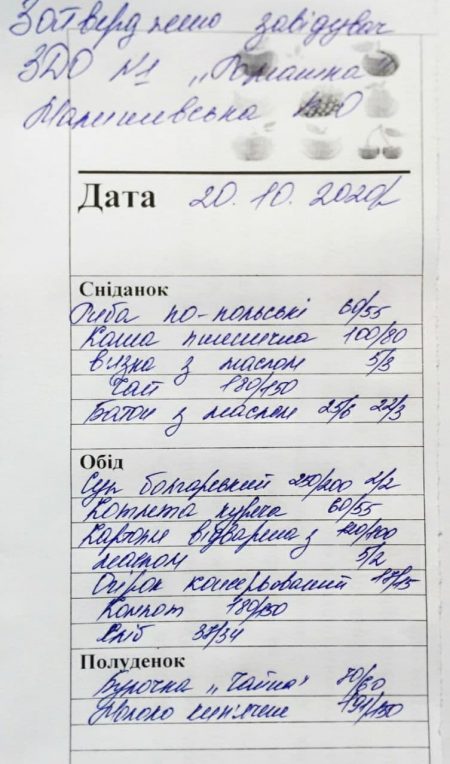 Затверджено завідувач
ЗДО №1 „Ромашка"
Малишевська
Дата 20.10.2020р
Сніданок
Риба по-польські 60/55
Каша пшенична 100/80
в'язка з маслом 5/3
Чай 180/150
Батон з маслом 25/6 22/3
Обід
Суп болгарський 250/200 2/2
Котлета куряча 60/55
Картопл відварена з 120/100
маслом 5/2
Огірок консервований 17/15
Компот 180/150
Хліб 37/34
Полуденок
Булочка „Чайна" 70/60
Молоко кип'ячене 194/150